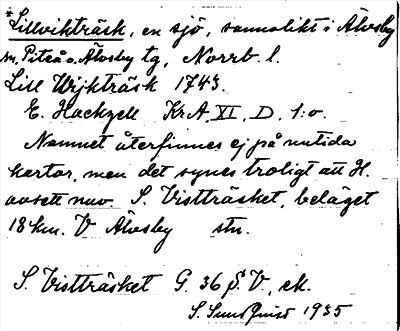 *Lillvikträsk, en sjö, sannolikt i Älvsby
sn, Piteå o. Älvsby tg, Norrb. l.
Lill Wijkträsk 1743.
E. Hackzell KrA, XI, D, 1:o.
Namnet återfinnes ej på nutida
kartor, men det synes troligt att H.
avsett nuv. S. Vistträsket, beläget
18 km. V Älvsby stn.
S. Vistträsket G. 36 S.V., ek.
S. Sundquist 1935